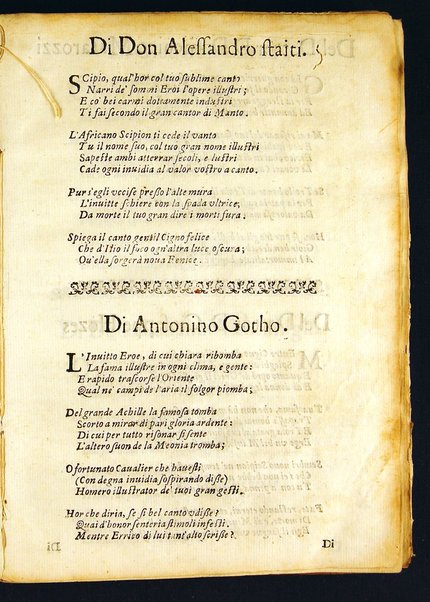 Di Don Alessandro staiti.
SCipio, qual'hor col tuo sublime canto
Narri de' sommi Eroi l'opere illustri;
E co' bei carmi dottamente industri
Ti fai secondo il gran cantor di Manto.
L'Africano Scipion ti cede il vanto
Tu il nome suo, col tuo gran nome illustri
Sapeste ambi atterrar secoli, e lustri
Cade ogni inuidia al valor vostro a canto.
Pur s'egli vccise presso l'alte mura
L'inuitte schiere con la spada vltrice,
Da morte il tuo gran dire i morti fura.
Spiega il canto gentil Cigno felice
Che d'Ilio il foco ogn'altra luce oscura;
Ou'ella sorgerà noua Fenice.
Di Antonino Gotho.
L'Inuitto Eroe, di cui chiara ribomba
La fama illustre in ogni clima, e gente:
E rapido trascorse l'Oriente
Qual ne' campi de l'aria il folgor piomba;
Del grande Achille la famosa tomba
Scorto a mirar di pari gloria ardente:
Di cui per tutto risonar si sente
L'altero suon de la Meonia tromba;
O fortunato Caualier che hauesti
(Con degna inuidia sospirando disse)
Homero illustrator de' tuoi gran gesti.
Hor che diria, se sì bel canto vdisse?
Quai d'honor senteria stimoli infesti.
Mentre Errico di lui tant'alto scrisse?
Di